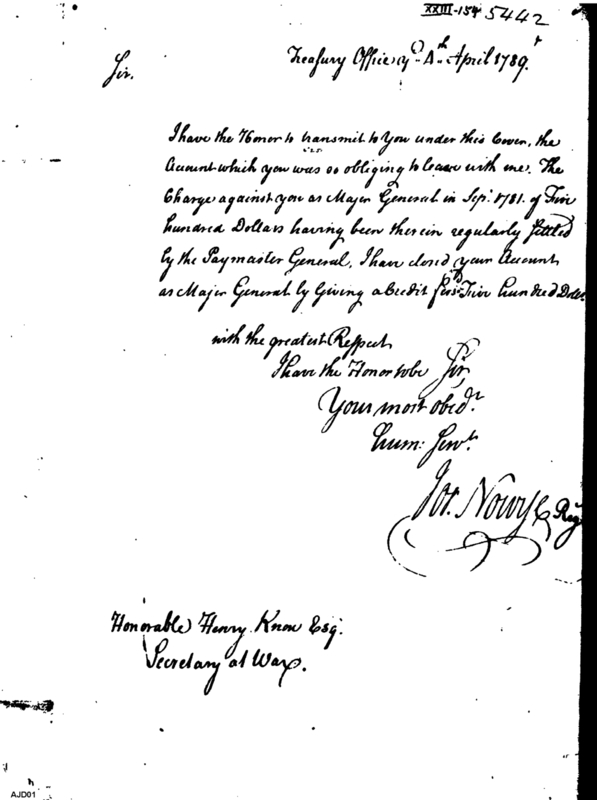 XXIII-154 5442
Treasury Office yᵉ 4ᵗʰ April 1789.
Sir.
I have the Honor to transmit to You under this Cover, the
Account which you was so obliging to leave with me. The
Charge against you as Major General in Sepʳ. 1781. of Five
hundred Dollars having been therein regularly settled
by the Paymaster General, I have closed your Account
as Major General by Giving a Credit for sᵈ. Five hundred Dollˢ.
with the greatest Respect
I have the Honor to be Sir,
Your most obedᵗ.
hum: Servᵗ.
Jos. Nourse Regʳ
Honorable Henry Knox Esq.
Secretary at War.
AJD01